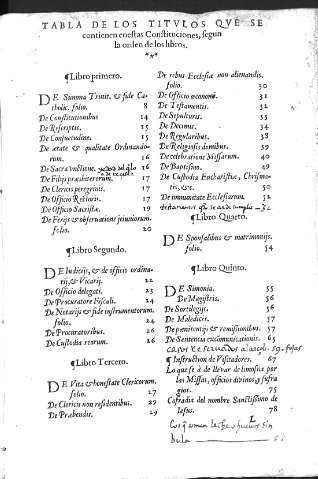 TABLA DE LOS TITVLOS QVE SE
contienen enestas Constituciones, segun
la orden de los libros.
¶Libro primero.
DE Summa Trinit. & fide Ca-
tholic. folio 8
De Constitutionibus 24
De Rescriptis. 15
De Consuetudine. 15
De ætate & qualitate Ordinando-
rum. 16
De Sacra vnctione. 16
De Filijs præsbiterorum. 17
De Clericis peregrinis. 17
De Officio Rectoris. 17
De Officio Sacristæ. 19
De Ferijs & obseruatione ieiuniorum.
folio. 20
¶Libro Segundo.
DE Iudicijs, & de officio ordina-
rij, & Vicarij. 22
De Officio delegati. 23
De Procuratore Fiscali. 24
De Notarijs & fide instrumentorum.
folio. 24
De Procuratoribus. 26
De Custodia reorum. 26
¶Libro Tercero.
DE Vita & honestate Clericorum.
folio. 27
De Clericis non residentibus. 29
De Præbendis. 29
De rebus Ecclesiæ non alienandis.
folio. 30
De Officio œconomi. 31
De Testamentis. 32
De Sepulturis. 33
De Decimis. 34
De Regularibus. 38
De Religiosis domibus. 39
De celebratione Missarum. 40
De Baptismo. 49
De Custodia Eucharistiæ, Chrisma-
tis, &c. 50
De immunitate Ecclesiarum. 52
¶Libro Quarto.
DE Sponsalibus & matrimonijs.
folio. 54
¶Libro Quinto.
DE Simonia. 55
De Magistris. 56
De Sortilegijs. 56
De Maledicis. 57
De pœnitentijs & remissionibus. 57
De Sentencia excomunicationis. 65
casos reseruados
¶Instruction de Visitadores. 67
Lo que se à de lleuar de limosna por
las Missas, officios diuinos, y sufra
gios. 75
Cofradia del nombre Sanctissimo de
Iesus. 78